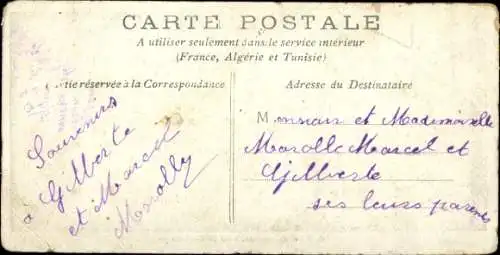 CARTE POSTALE
A utiliser seulement dans le service intérieur
(France, Algérie et Tunisie)
tie réservée à la Correspondance
Adresse du Destinataire
Souvenirs
à Gilberte
et Marcel
Marolly
Monsieur et Mademoiselle
Marolle Marcel et
Gilberte
ses leurs parents